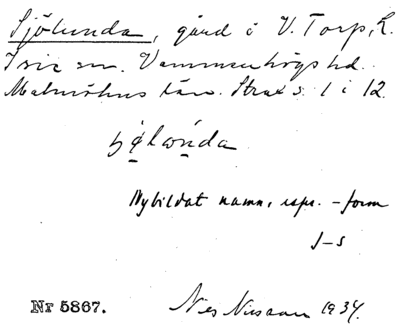 Sjölunda, gård i V. Torp, L.
Isie sn. Vemmenhögs hd.
Malmöhus län. Strax s. 1 i 12.
Nybildat namn, resp. -form
J-s
Nr 5867. Nils Nilsson 1934.